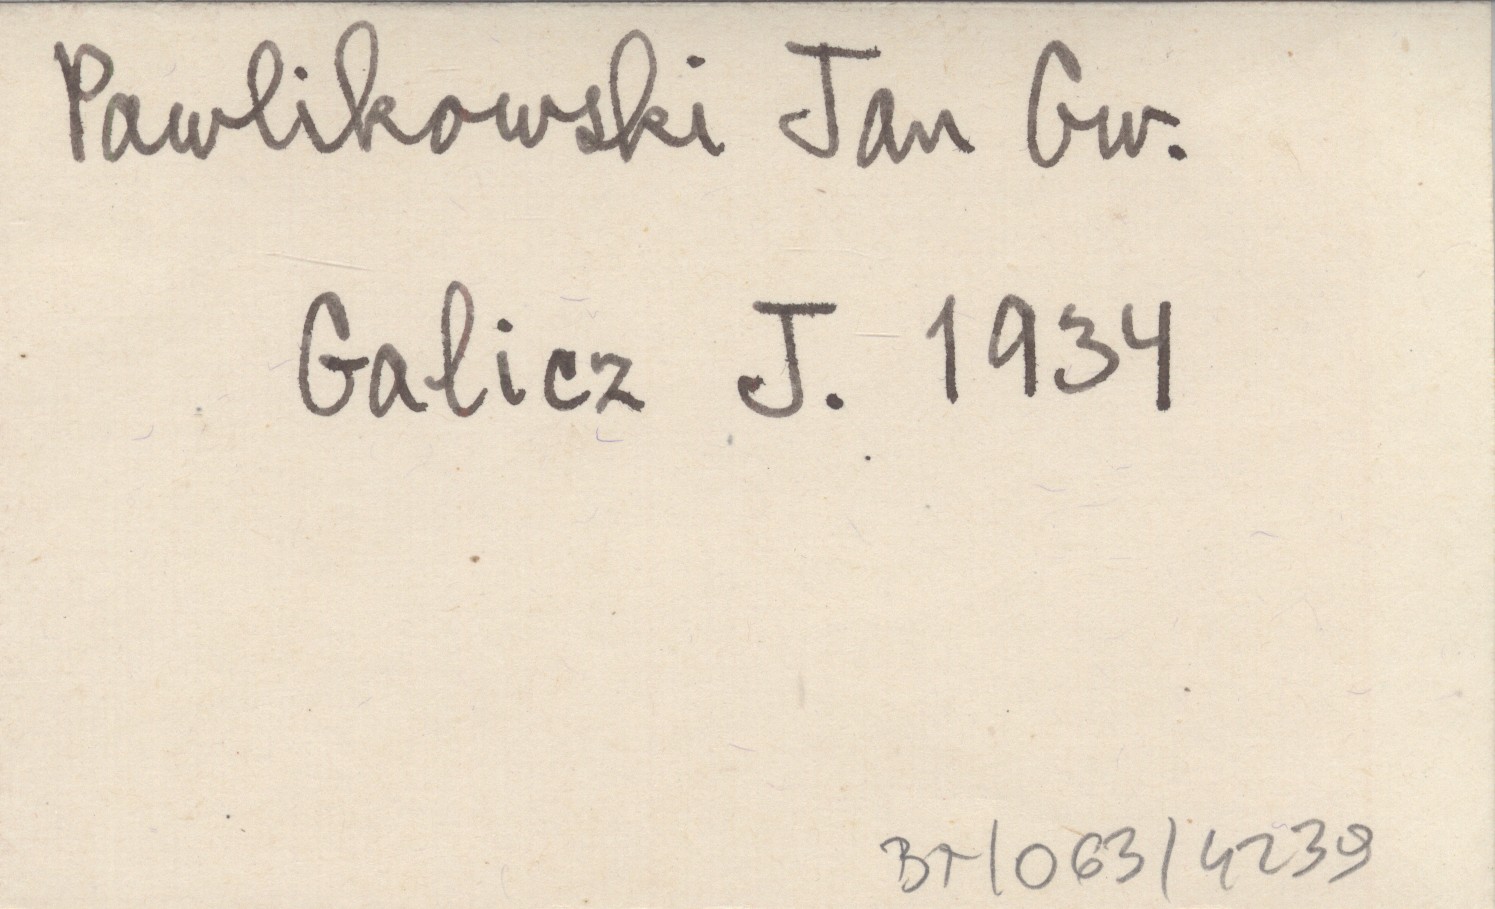 Pawlikowski Jan Gw.
Galicz J. 1934
BT/063/4239